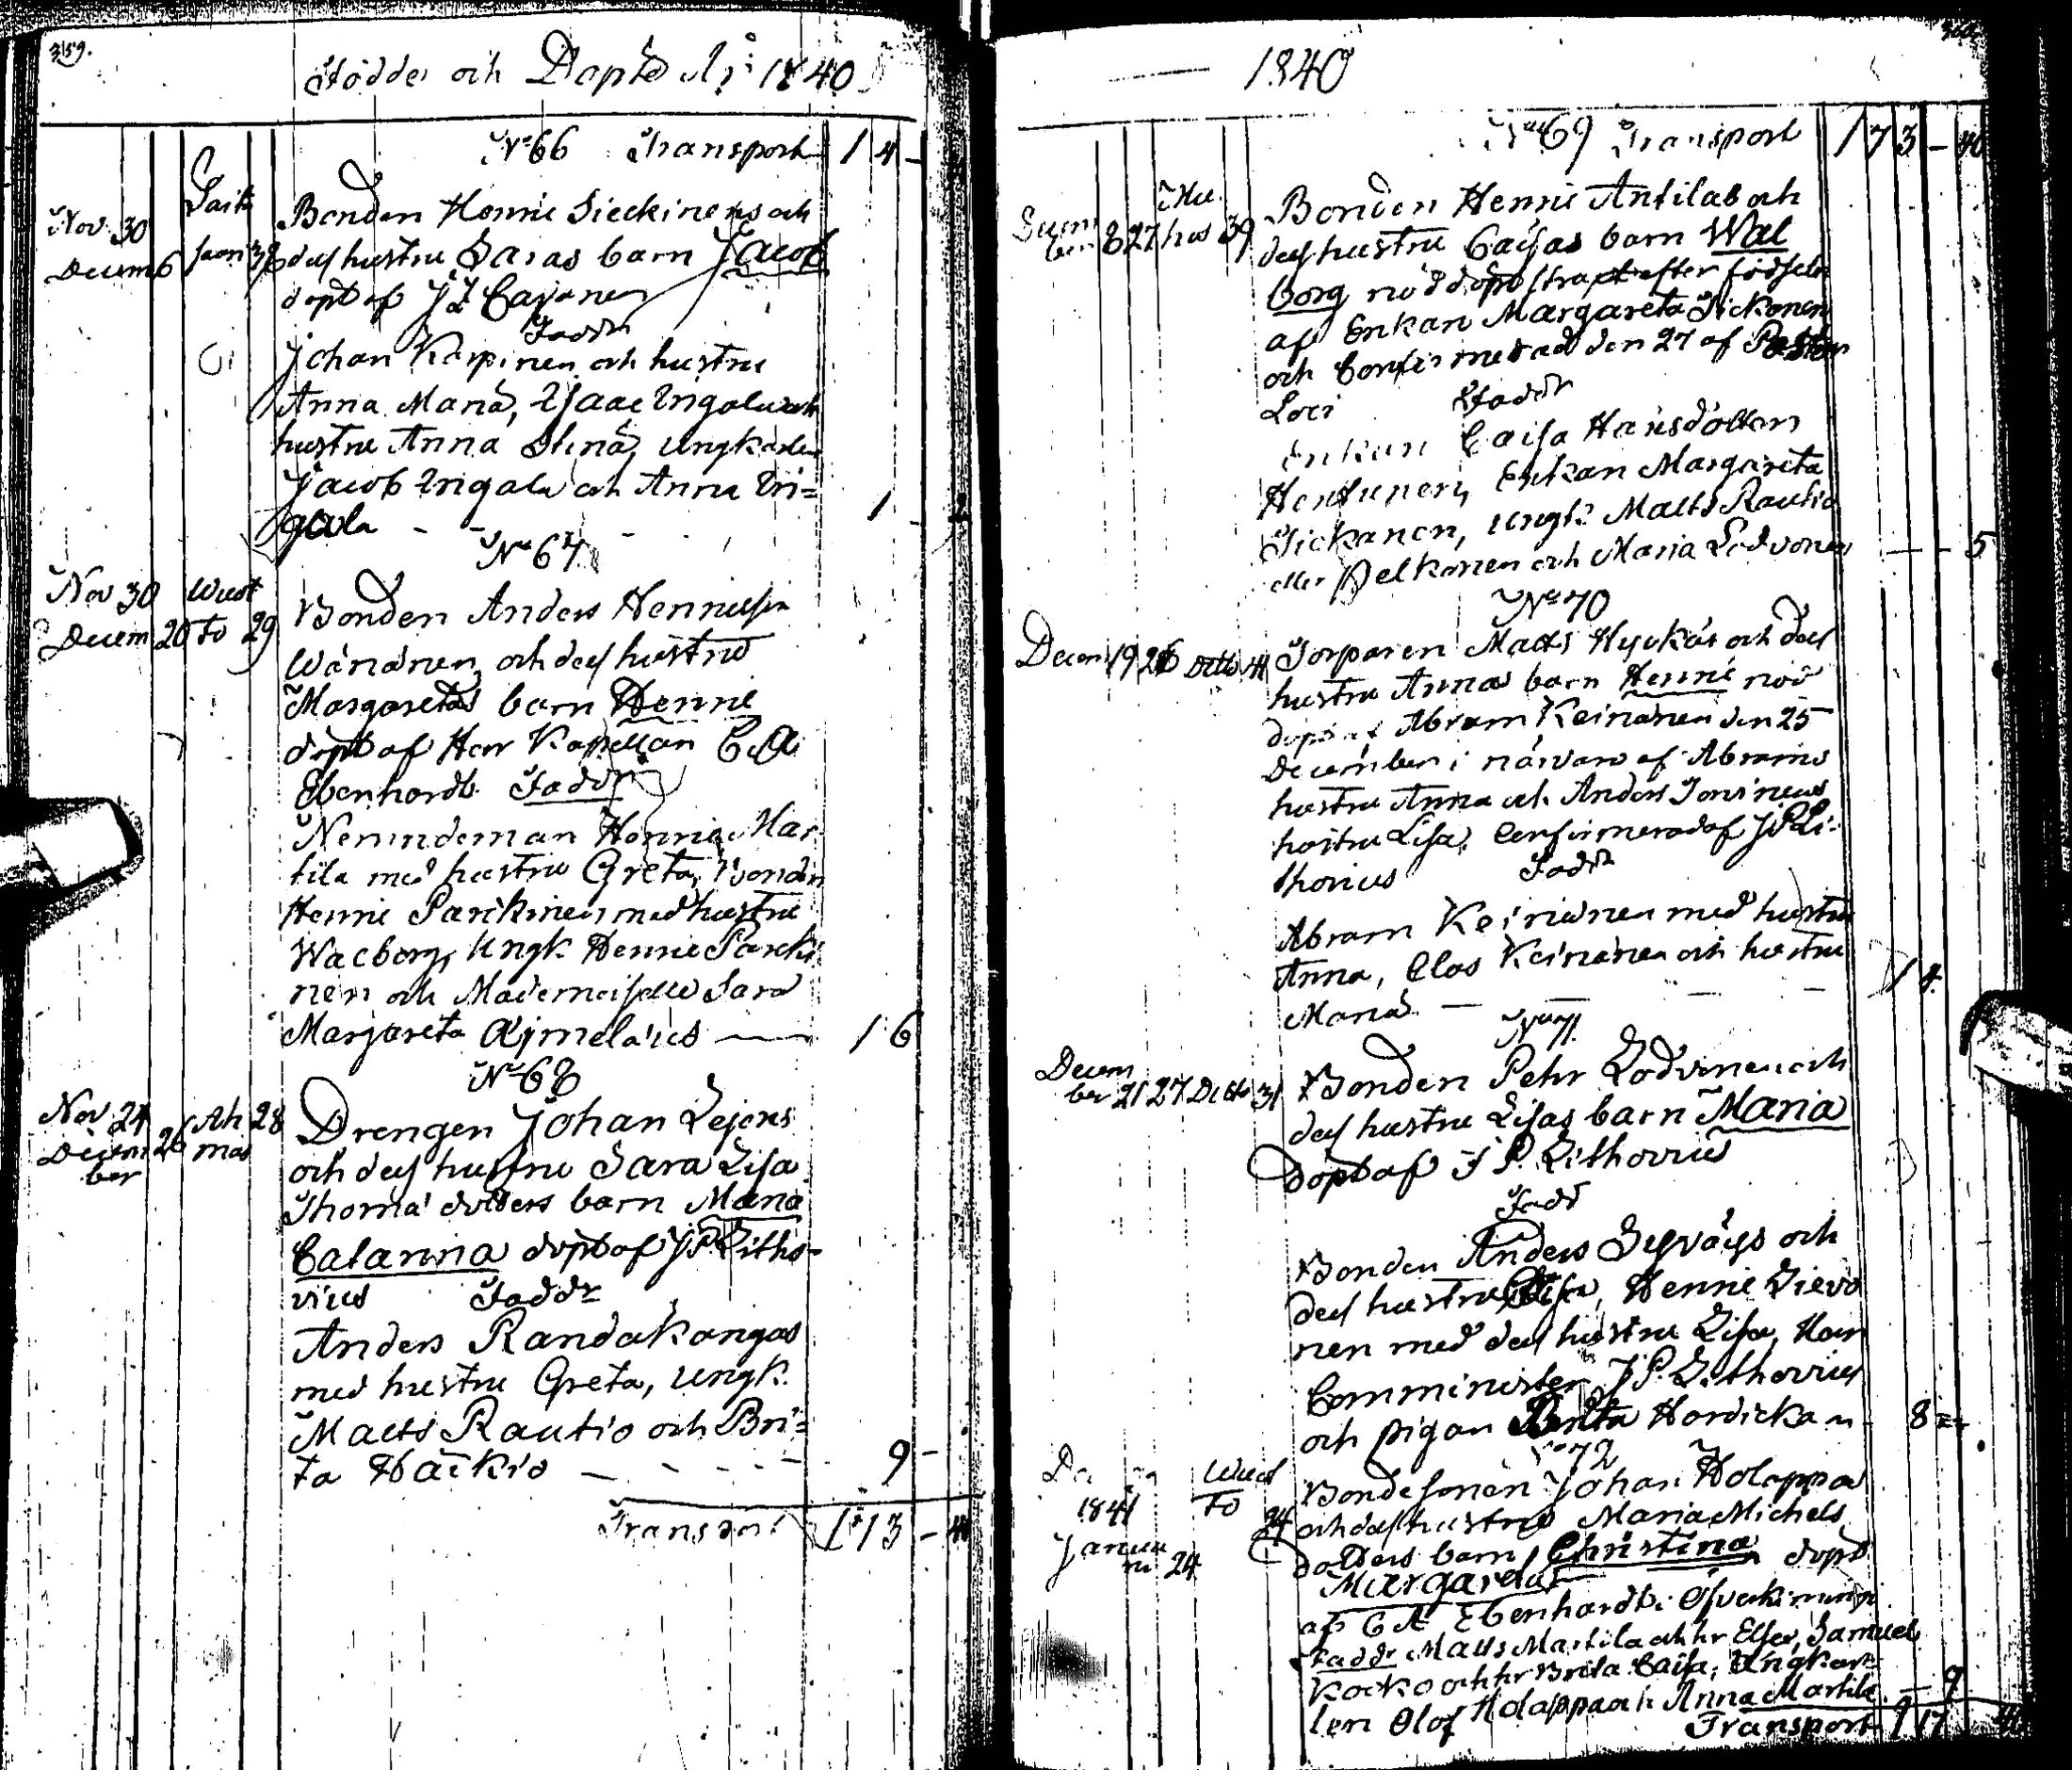 359.
Födde och Döpte År 1840
No 66 Transport 1 4 -
Nov 30
Decem 6
Bonden Henric Sieckinens och
dess hustru Saras barn Jacob
döpt af J I Cajanus
Faddr
Johan Karpinen och hustru
Anna Maria, Isaac Ingala och
hustru Anna Stina, Ungkarlen
Jacob Ingala och Anna In=
gala - - - 1
No 67
Nov 30 Wuot
Decem 20 to 29
Bonden Anders Henricsson
Wänänen och dess hustru
Margaretas barn Henric
döpt af Herr Kapellan C A
Ebenhardt Faddr
Nemndeman Henric Mar
tila med hustru Greta, Bonden
Henric Parckinen med hustru
Walborg, Ungk. Henric Parcki
nen och Mademoiselle Sara
Margareta Ajmelæus — 1 6
No 68
Nov 24 Ah 28
Decem 26 mas
ber
Drengen Johan Lejons
och dess hustru Sara Lisa
Thomædotters barn Maria
Catarina döpt af J P Litho-
vius Faddr
Anders Randakangas
med hustru Greta, Ungk.
Matts Rautio och Bri=
ta Häikiö - - - - 9 -
Transport 173 - 40
360.
1840
No 69 Transport 173 - 40
Decem
ber 8 27 hus 39
Bonden Henric Antilas och
dess hustru Caisas barn Wal
borg nöddöpt strax efter födseln
af Enkan Margareta Tickanen
och confirmerad den 27 af Pastor
Loci Faddr
Enkan Caisa Hansdotter
Hentunen, Enkan Margareta
Tickanen, Ungk: Matts Rautio
eller Pelkonen och Maria Lodvonen — - 5
No 70
Decem 19 26 Ditto 41
Torparen Matts Hyckäs och dess
hustru Annas barn Henric nöd
döpt af Abram Keinänen den 25
December i närvaro af Abrams
hustru Anna och Anders Tervinens
hustru Lisa, confirmerad af J P Li-
thovius Faddr
Abram Keinänen med hustru
Anna, Clas Keinänen och hustru
Maria - - - 1 4
No 71.
Decem
ber 21 27 Ditto 31
Bonden Pehr Lodvinen och
dess hustru Lisas barn Maria
döpt af J P. Lithovius
Fadd
Bonden Anders Syväys och
dess hustru Caisa, Henric Sievo
nen med dess hustru Lisa, Herr
Comminister J P. Lithovius
och pigan Brita Hardickain 8
No 72
1841
Janua
ri 24
Wuot
to 24
Bondesonen Johan Holappa
och dess hustru Maria Michels
dotters barn Christina döpt
Margareta
af C A Ebenhardt i Öfverkiminge
Faddr Matts Martila och hr Elsa, Samuel
Kocko och hr Brita Caisa, Ungkar
len Olof Holappa och Anna Martila - 9
Transport 1 17